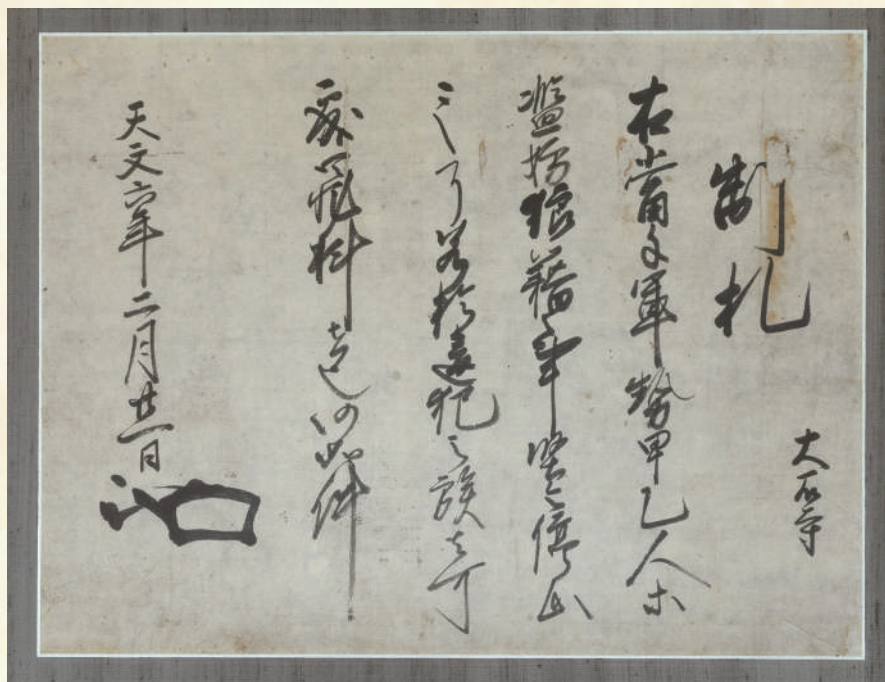 制札
大石寺
右当手軍勢甲乙人等
濫妨狼藉事堅令停止
之了若於違犯之族者可
処罪科者也仍如件
天文六年二月廿一日